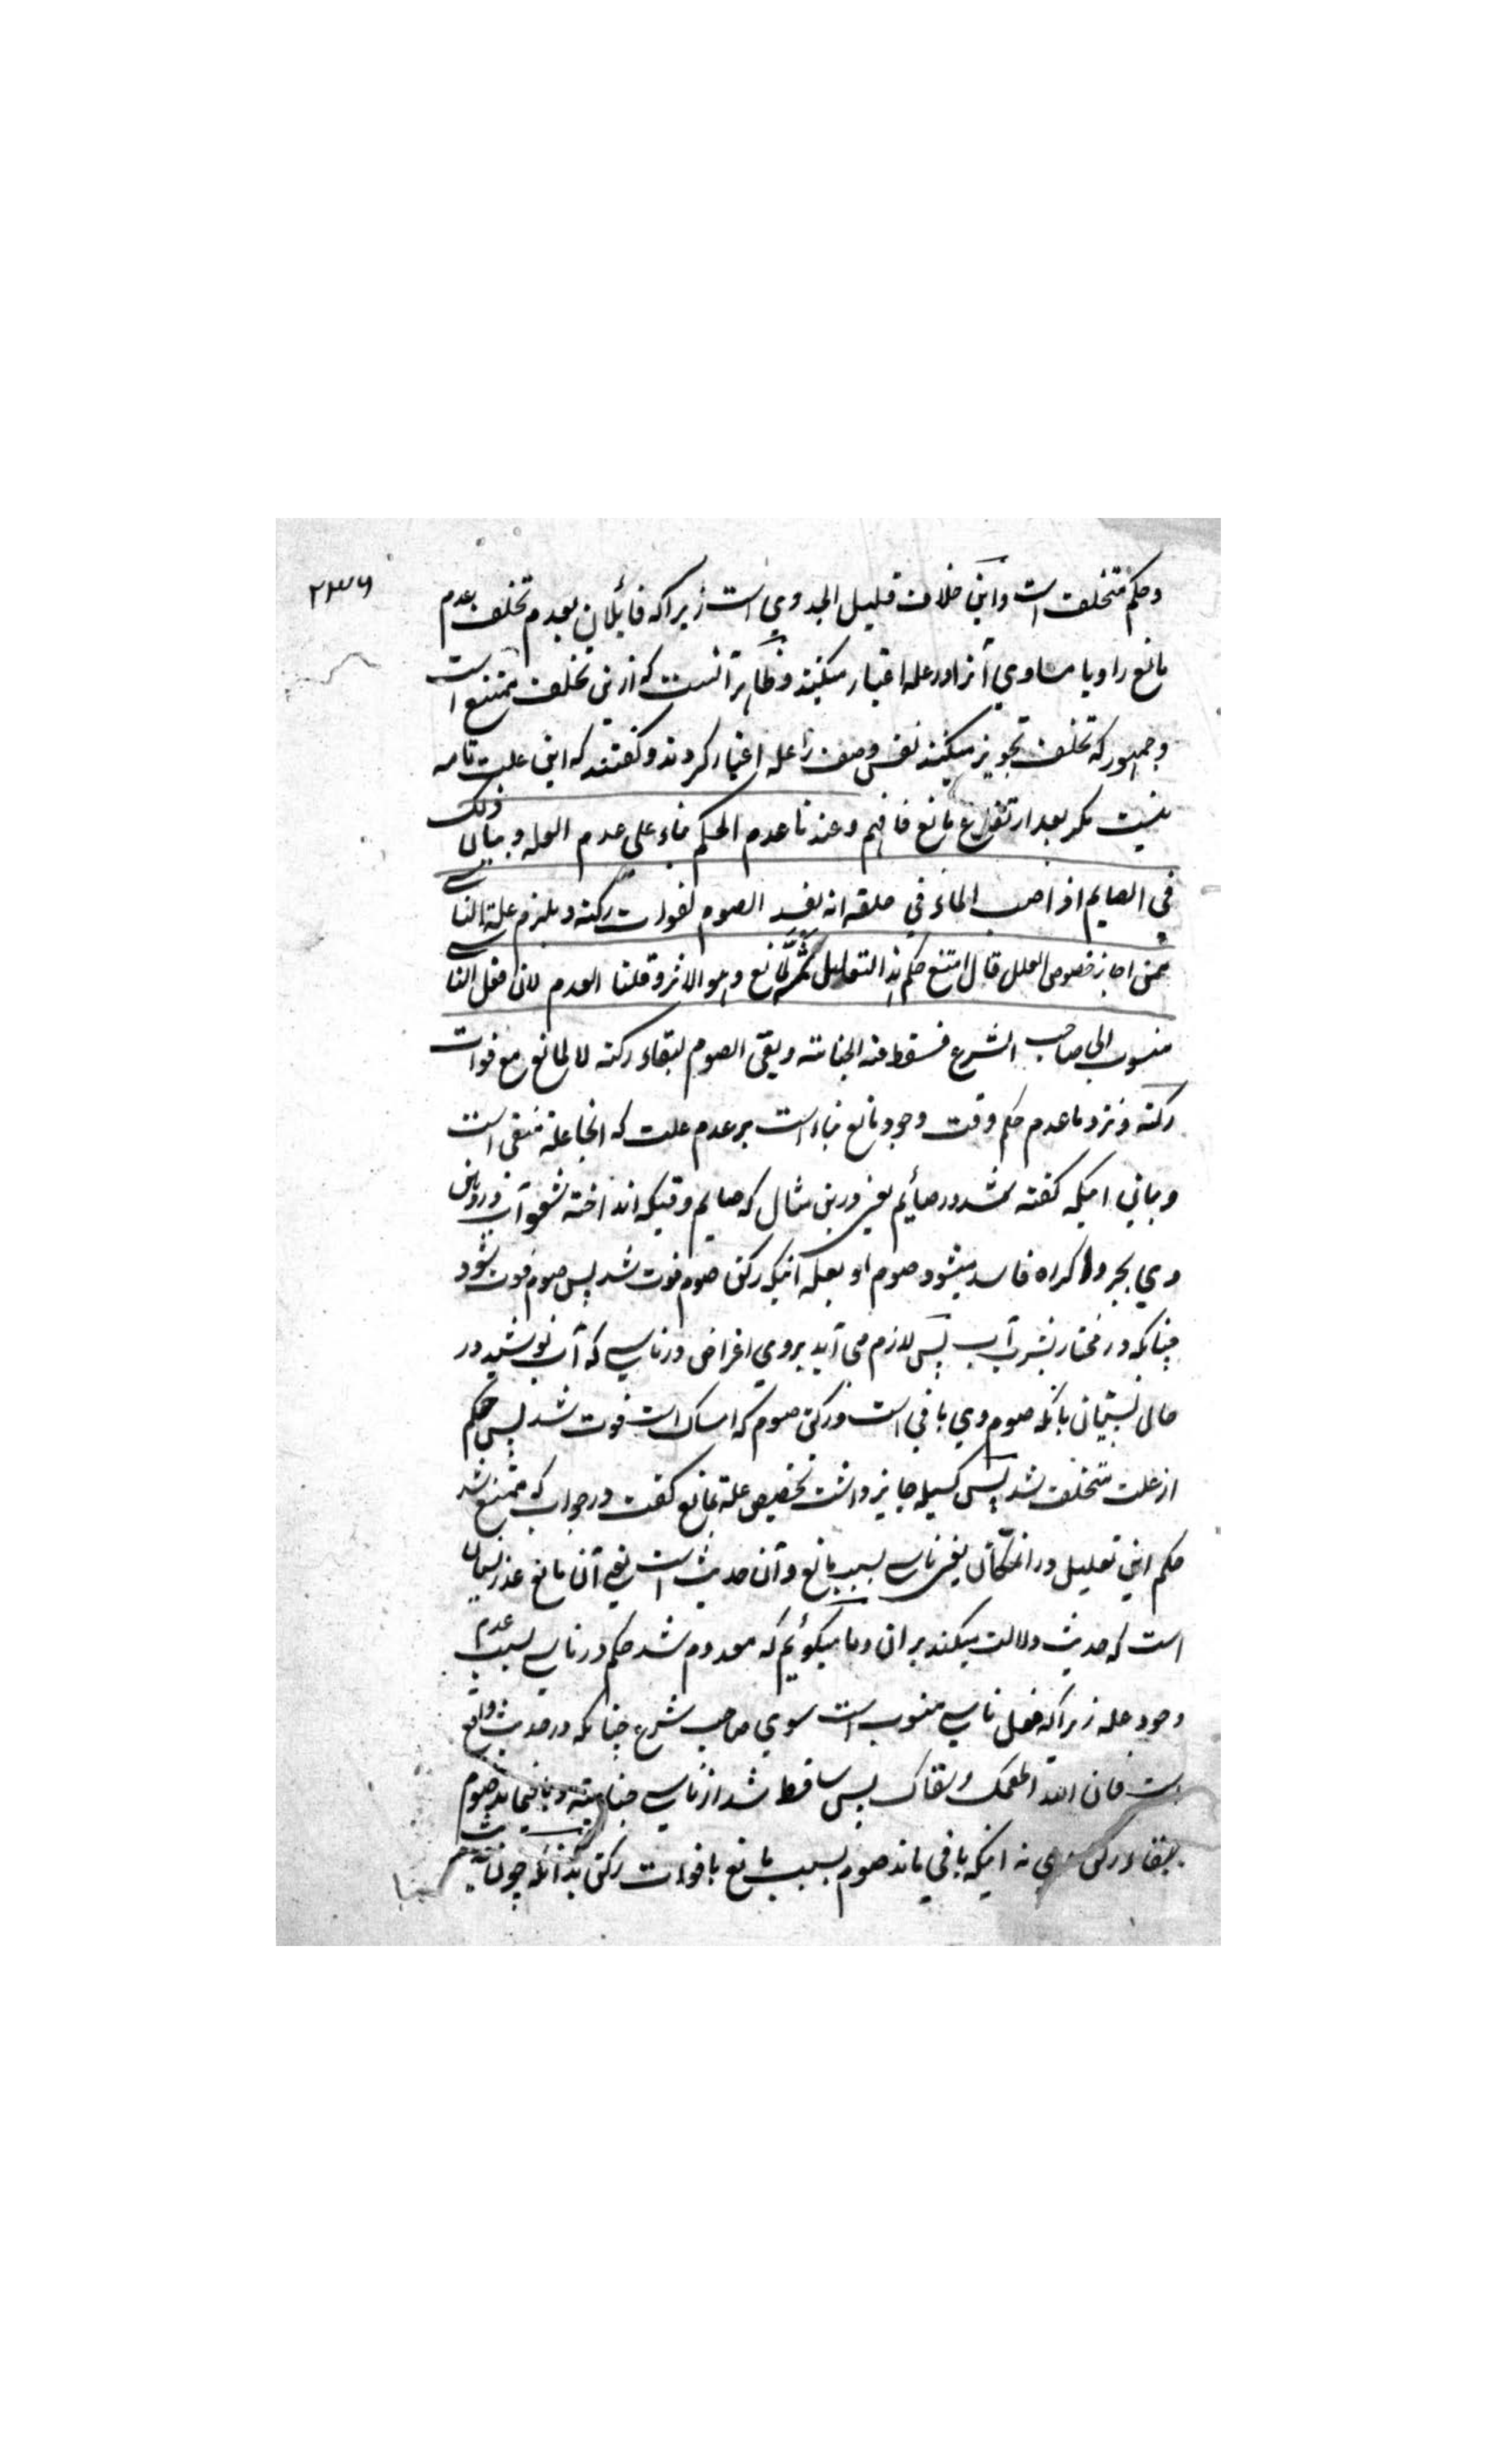 ۲۳۶
وحکم متخلف است واین خلاف قلیل الجدوي است زیراکه قائلان بعدم تخلف عدم
مانع را ویا مساوي آنرا در علة اعتبار میکنند وظاهر آنست که ازین تخلف ممتنع است
وجمهور که تخلف تجویز میکنند نفس وصف را علة اعتبار کردند وگفتند که این علت تامه
نیست مگر بعد ارتفاع مانع فافهم وعندنا عدم الحکم بناء علی عدم العله وبیان ذلک
في الصایم اذا صب الماء في حلقه انه یفسد الصوم لفوات رکنه ویلزم علیه الناسي
فمن اجاز خصوص العلل قال امتنع حکم هذا التعلیل ثمه لمانع وهو الاثر وقلنا العدم لان فعل الناسي
منسوب الی صاحب الشرع فسقط عنه الجنایة وبقی الصوم لبقاء رکنه لا لمانع مع فوات
رکنه ونزد ما عدم حکم وقت وجود مانع بناء است بر عدم علت که انجا علة منتفی است
وبیانی اینکه گفته شد در صائم یعنی درین مثال که صایم وقتیکه انداخته شود آب در دهان
وي بجر واکراه فاسد میشود صوم او بعلة آنیکه رکن صوم فوت شد پس صوم فوت شود
چنانکه در مختار بشرب آب پس لازم می آید بروي اعتراض در ناسي که آب نوشید در
حالی نسیان بانکه صوم وي باقي است ورکن صوم که امساک است فوت شد پس حکم
از علت متخلف شد پس کسیکه جایز داشت تخصیص علة بمانع گفت در جواب که ممتنع شد
حکم این تعلیل در انمکان یعنی ناسي بسبب مانع وآن حدیث است یعنی آن مانع عذر نسیان
است که حدیث دلالت میکند بر ان وما میگوئیم که معدوم شد حکم در ناسي بسبب عدم
وجود علة زیراکه فعل ناسي منسوب است سوي صاحب شرع چنانکه در حدیث واقع
است فان الله اطعمک وسقاک پس ساقط شد از ناسي جنایة وباقیماند صوم
ببقاء رکن وي نه اینکه باقي ماند صوم بسبب مانع با فوات رکن بدانکه چون